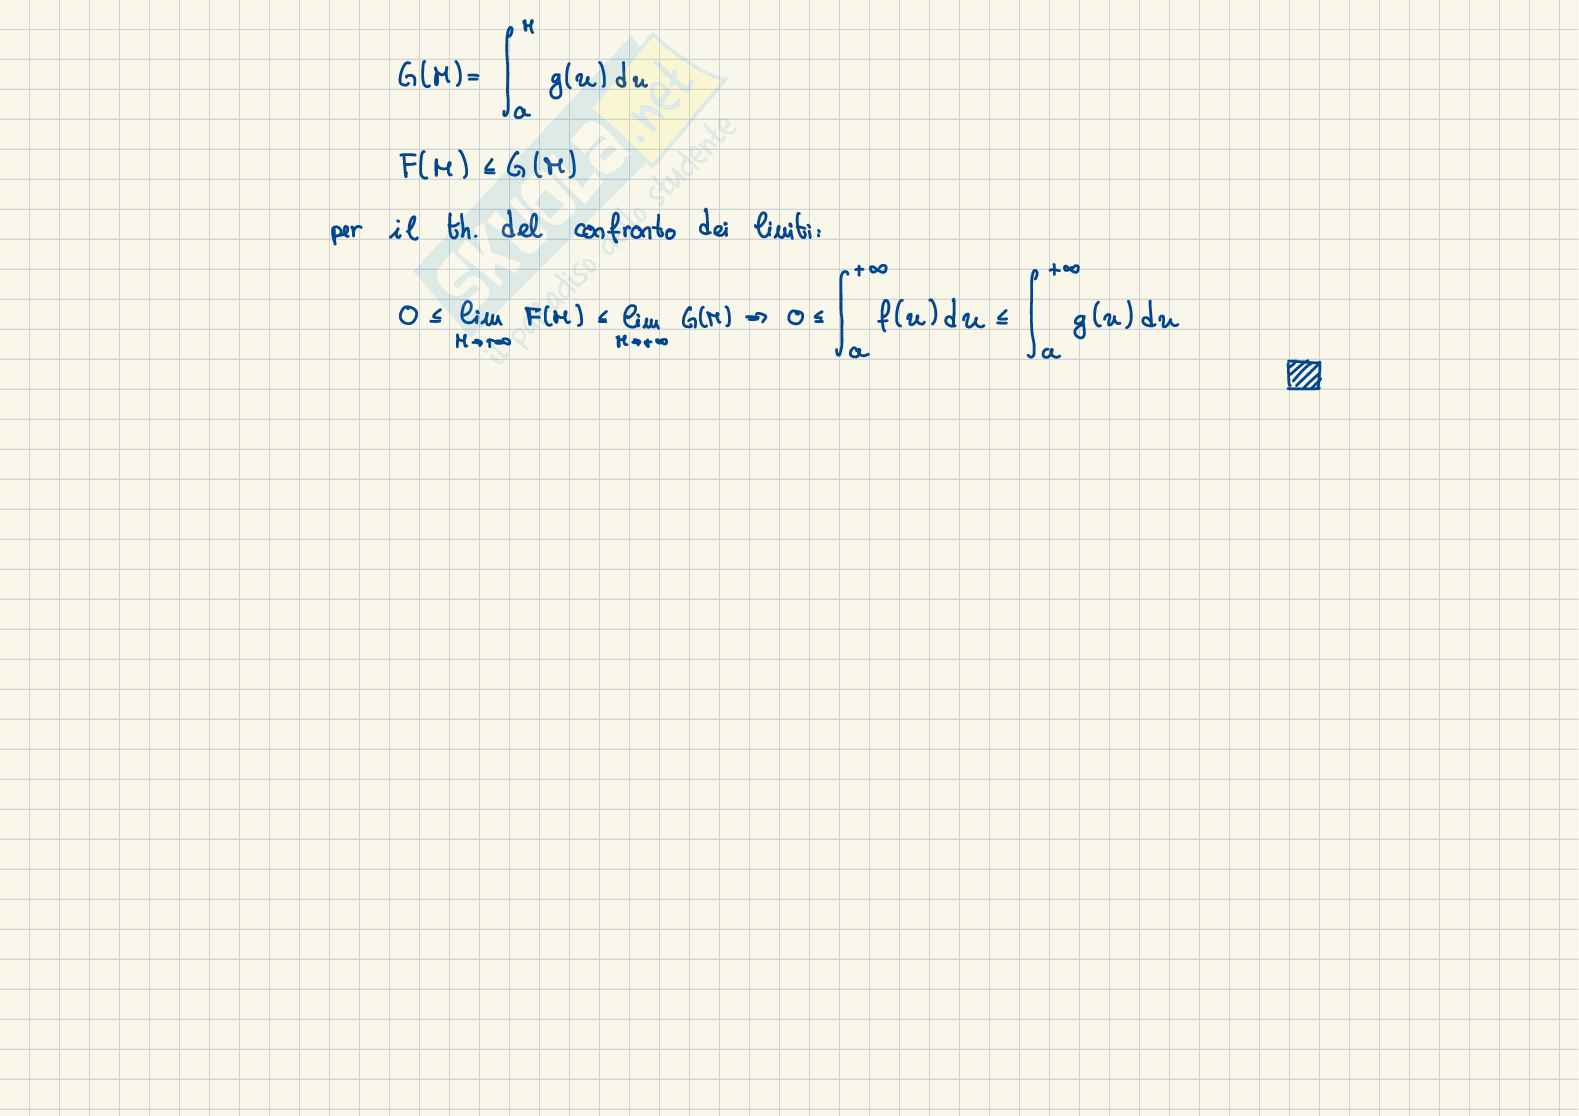 G(M) = ∫_a^M g(x) dx
F(M) ≤ G(M)
per il th. del confronto dei limiti:
0 ≤ lim_{M→+∞} F(M) ≤ lim_{M→+∞} G(M) ⇒ 0 ≤ ∫_a^{+∞} f(x) dx ≤ ∫_a^{+∞} g(x) dx
SKUOLA.net
il paradiso dello studente